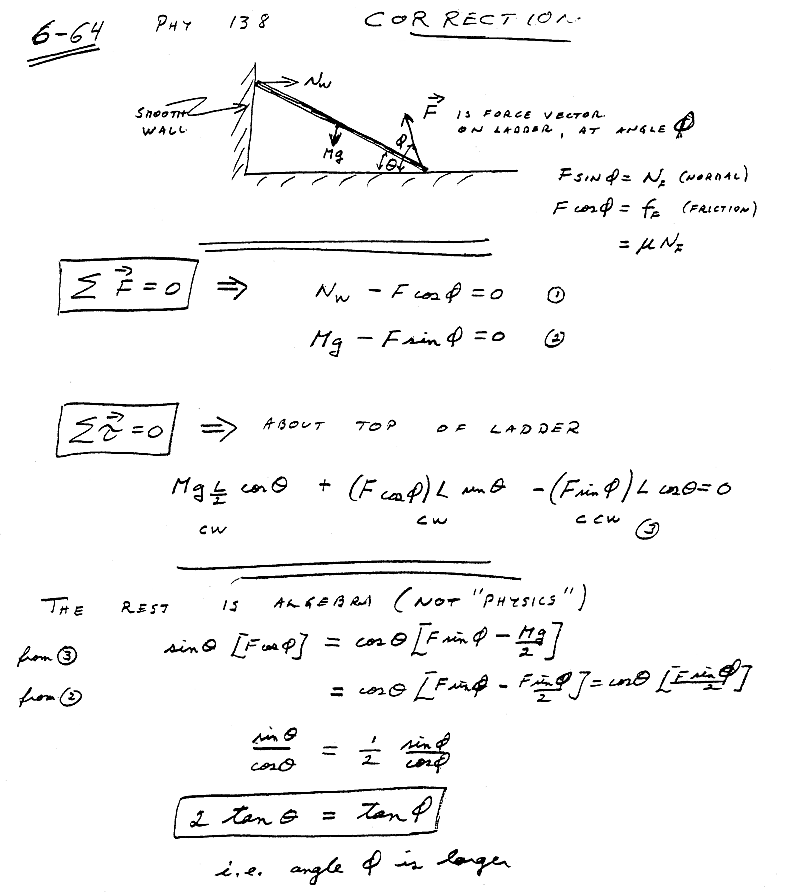 6-64 PHY 138 CORRECTION
N_W
SMOOTH WALL
F⃗ IS FORCE VECTOR
ON LADDER, AT ANGLE Φ
Mg θ Φ
F SIN Φ = N_F (NORMAL)
F cos Φ = f_F (FRICTION)
= μ N_F
Σ F⃗ = 0 ⇒ N_W − F cos Φ = 0 ①
Mg − F sin Φ = 0 ②
Σ τ⃗ = 0 ⇒ ABOUT TOP OF LADDER
Mg L/2 cos θ + (F cos Φ) L sin θ − (F sin Φ) L cos θ = 0
CW CW CCW ③
THE REST IS ALGEBRA (NOT "PHYSICS")
from ③ sin θ [F cos Φ] = cos θ [F sin Φ − Mg/2]
from ② = cos θ [F sin Φ − F sin Φ/2] = cos θ [F sin Φ/2]
sin θ/cos θ = 1/2 sin Φ/cos Φ
2 tan θ = tan Φ
i.e. angle Φ is larger